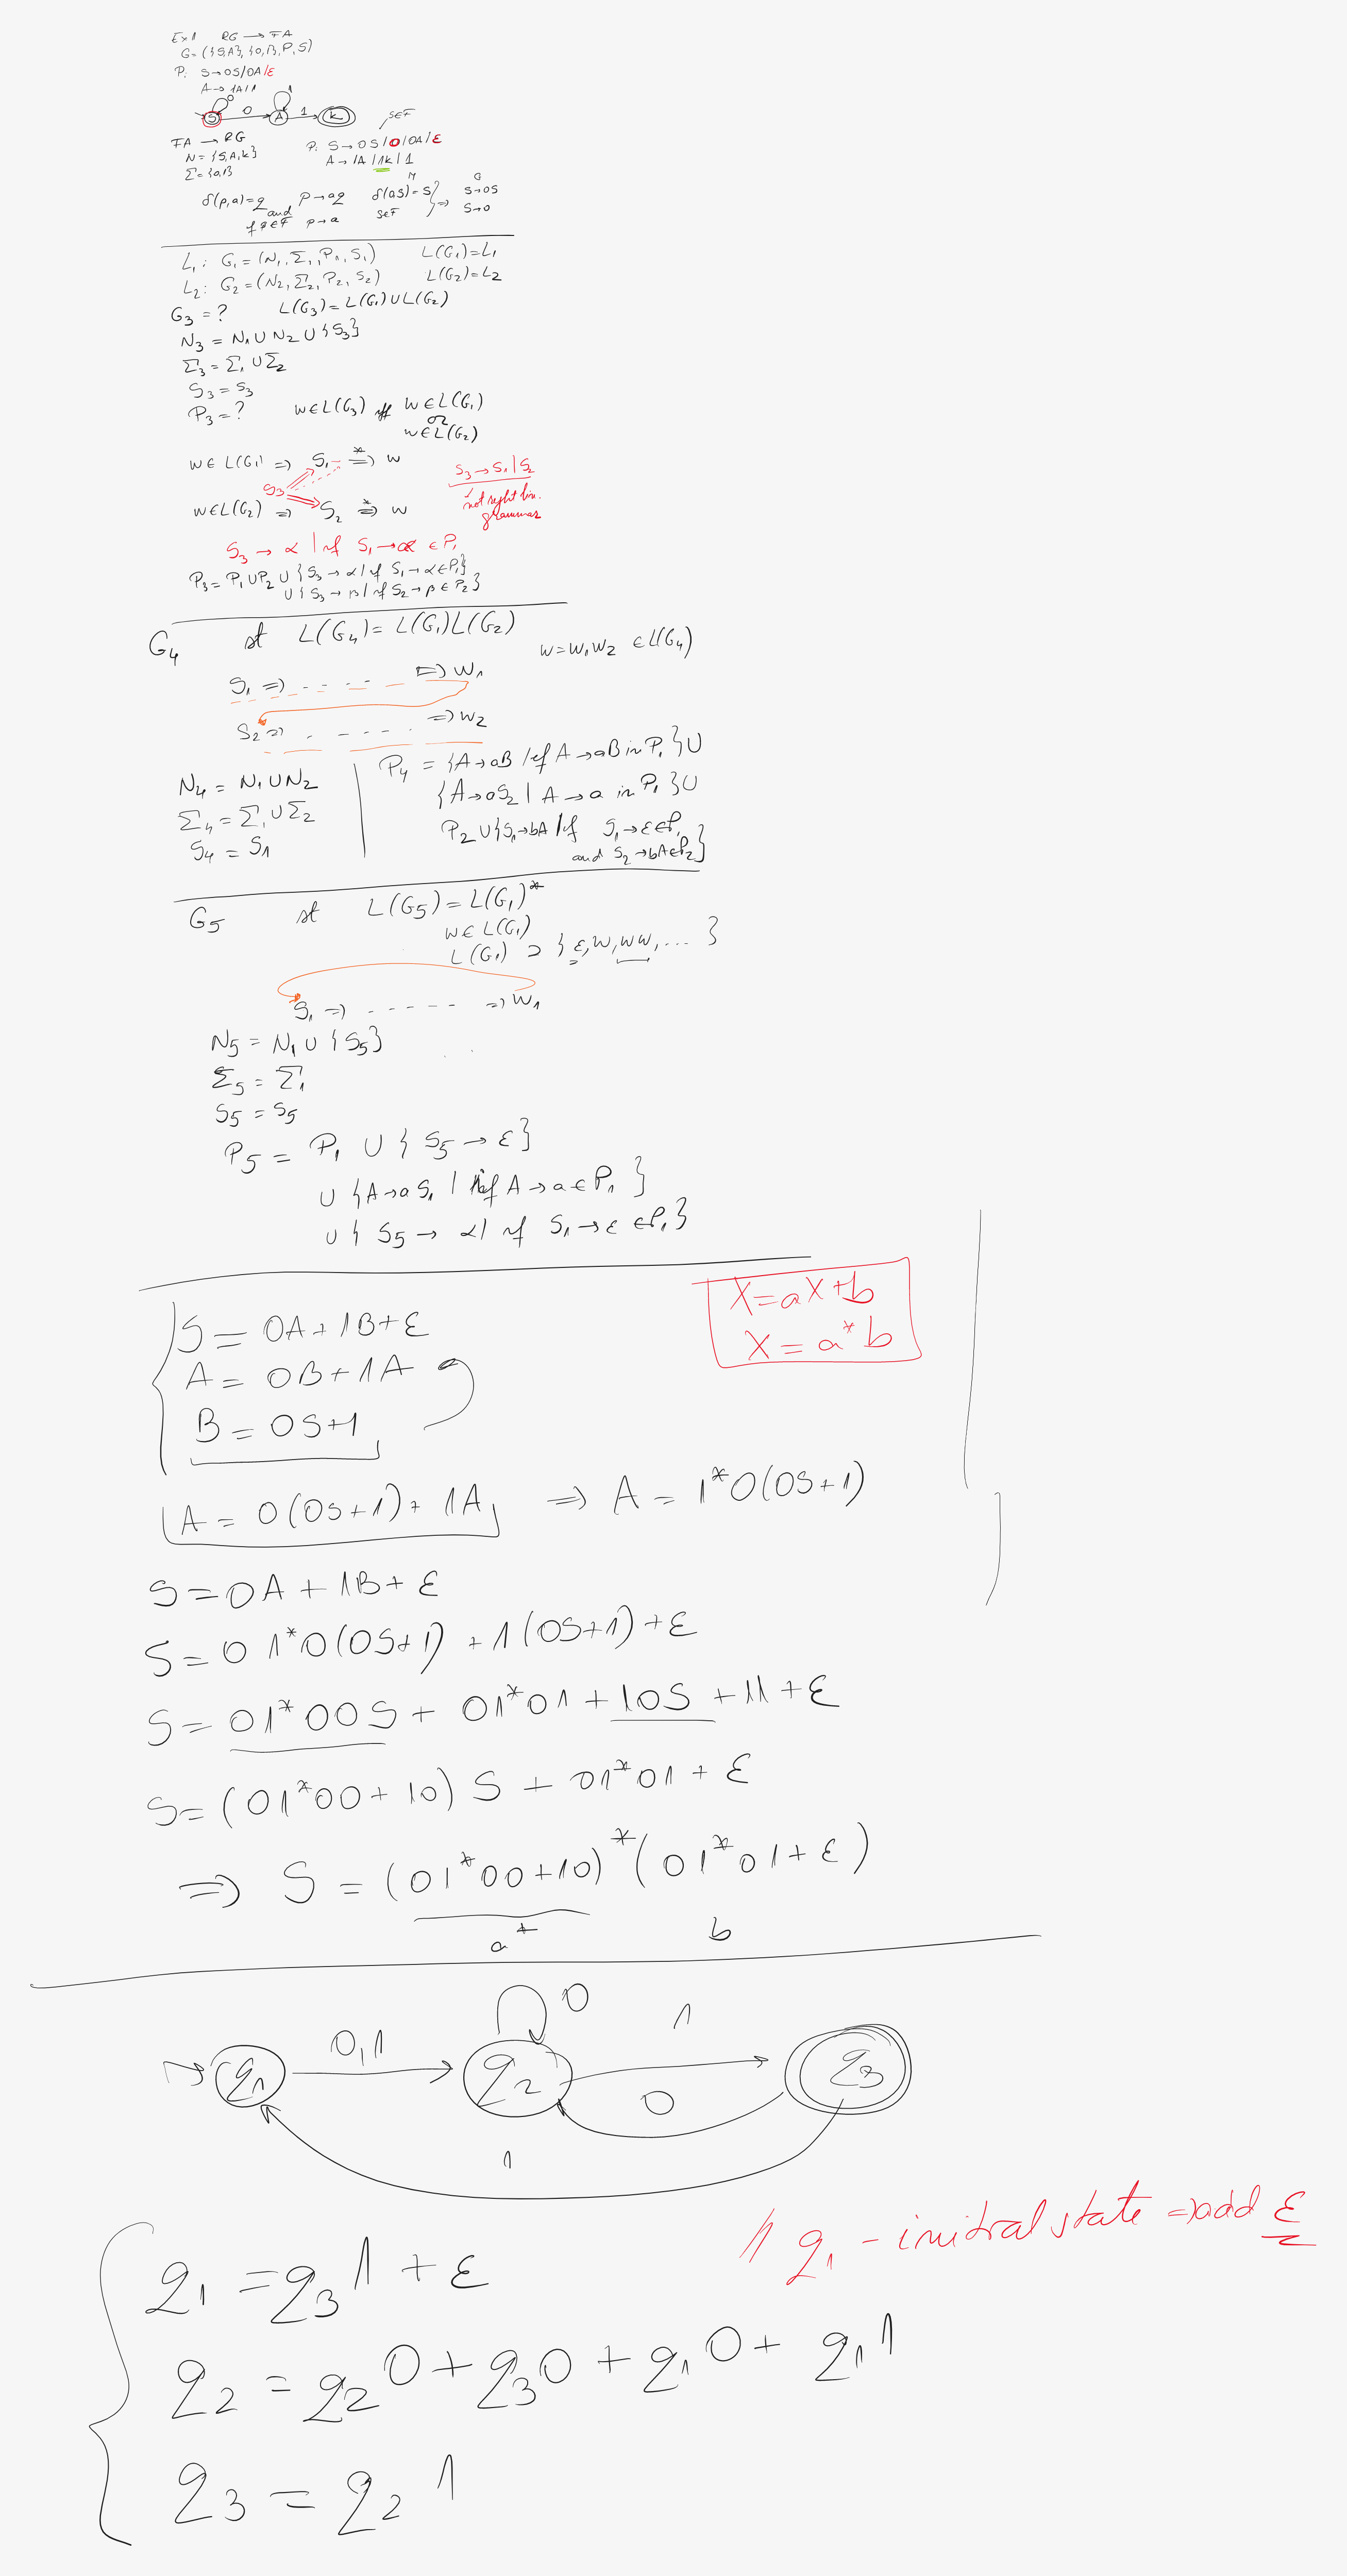 Ex1 RG → FA
G=({S,A}, {0,1}, P, S)
P: S→0S/0A/ε
A→1A/1
0 1
S 0 A 1 K
S∈F
FA → RG
N={S,A,K}
P: S→0S/0/0A/ε
A→1A/1K/1
Σ={0,1}
M G
δ(p,a)=q p→aq δ(0,S)=S} ⇒ S→0S
and
if q∈F p→a S∈F S→0
L₁: G₁=(N₁,Σ₁,P₁,S₁) L(G₁)=L₁
L₂: G₂=(N₂,Σ₂,P₂,S₂) L(G₂)=L₂
G₃=? L(G₃)=L(G₁)∪L(G₂)
N₃ = N₁∪N₂∪{S₃}
Σ₃=Σ₁∪Σ₂
S₃=S₃
P₃=? w∈L(G₃) iff w∈L(G₁)
or
w∈L(G₂)
w∈L(G₁) ⇒ S₁ *⇒ w
S₃→S₁|S₂
S₃
not right lin.
grammar
w∈L(G₂) ⇒ S₂ *⇒ w
S₃→α | if S₁→α ∈P₁
P₃=P₁∪P₂∪{S₃→α | if S₁→α∈P₁}
∪{S₃→β | if S₂→β∈P₂}
G₄ st L(G₄)=L(G₁)L(G₂)
w=w₁w₂ ∈L(G₄)
S₁ ⇒ - - - - ⇒ w₁
S₂ ⇒ - - - - ⇒ w₂
N₄=N₁∪N₂
Σ₄=Σ₁∪Σ₂
S₄=S₁
P₄ = {A→aB | if A→aB in P₁}∪
{A→aS₂ | A→a in P₁}∪
P₂∪{S₁→bA | if S₁→ε∈P₁
and S₂→bA∈P₂}
G₅ st L(G₅)=L(G₁)*
w∈L(G₁)
L(G₁) ⊃ {ε,w,ww,...}
S₁ ⇒ - - - - - ⇒ w₁
N₅=N₁∪{S₅}
Σ₅=Σ₁
S₅=S₅
P₅ = P₁ ∪ {S₅→ε}
∪ {A→aS₁ | if A→a∈P₁}
∪ {S₅→α | if S₁→ε ∈P₁}
X=aX+b
X=a*b
S=0A+1B+ε
A=0B+1A
B=0S+1
A=0(0S+1)+1A ⇒ A=1*0(0S+1)
S=0A+1B+ε
S=01*0(0S+1)+1(0S+1)+ε
S=01*00S+01*01+10S+11+ε
S=(01*00+10)S+01*01+ε
⇒ S=(01*00+10)*(01*01+ε)
a* b
0
0,1 1
q₁ q₂ q₃
0
1
// q₁ - initial state ⇒ add ε
q₁=q₃1+ε
q₂=q₂0+q₃0+q₁0+q₁1
q₃=q₂1